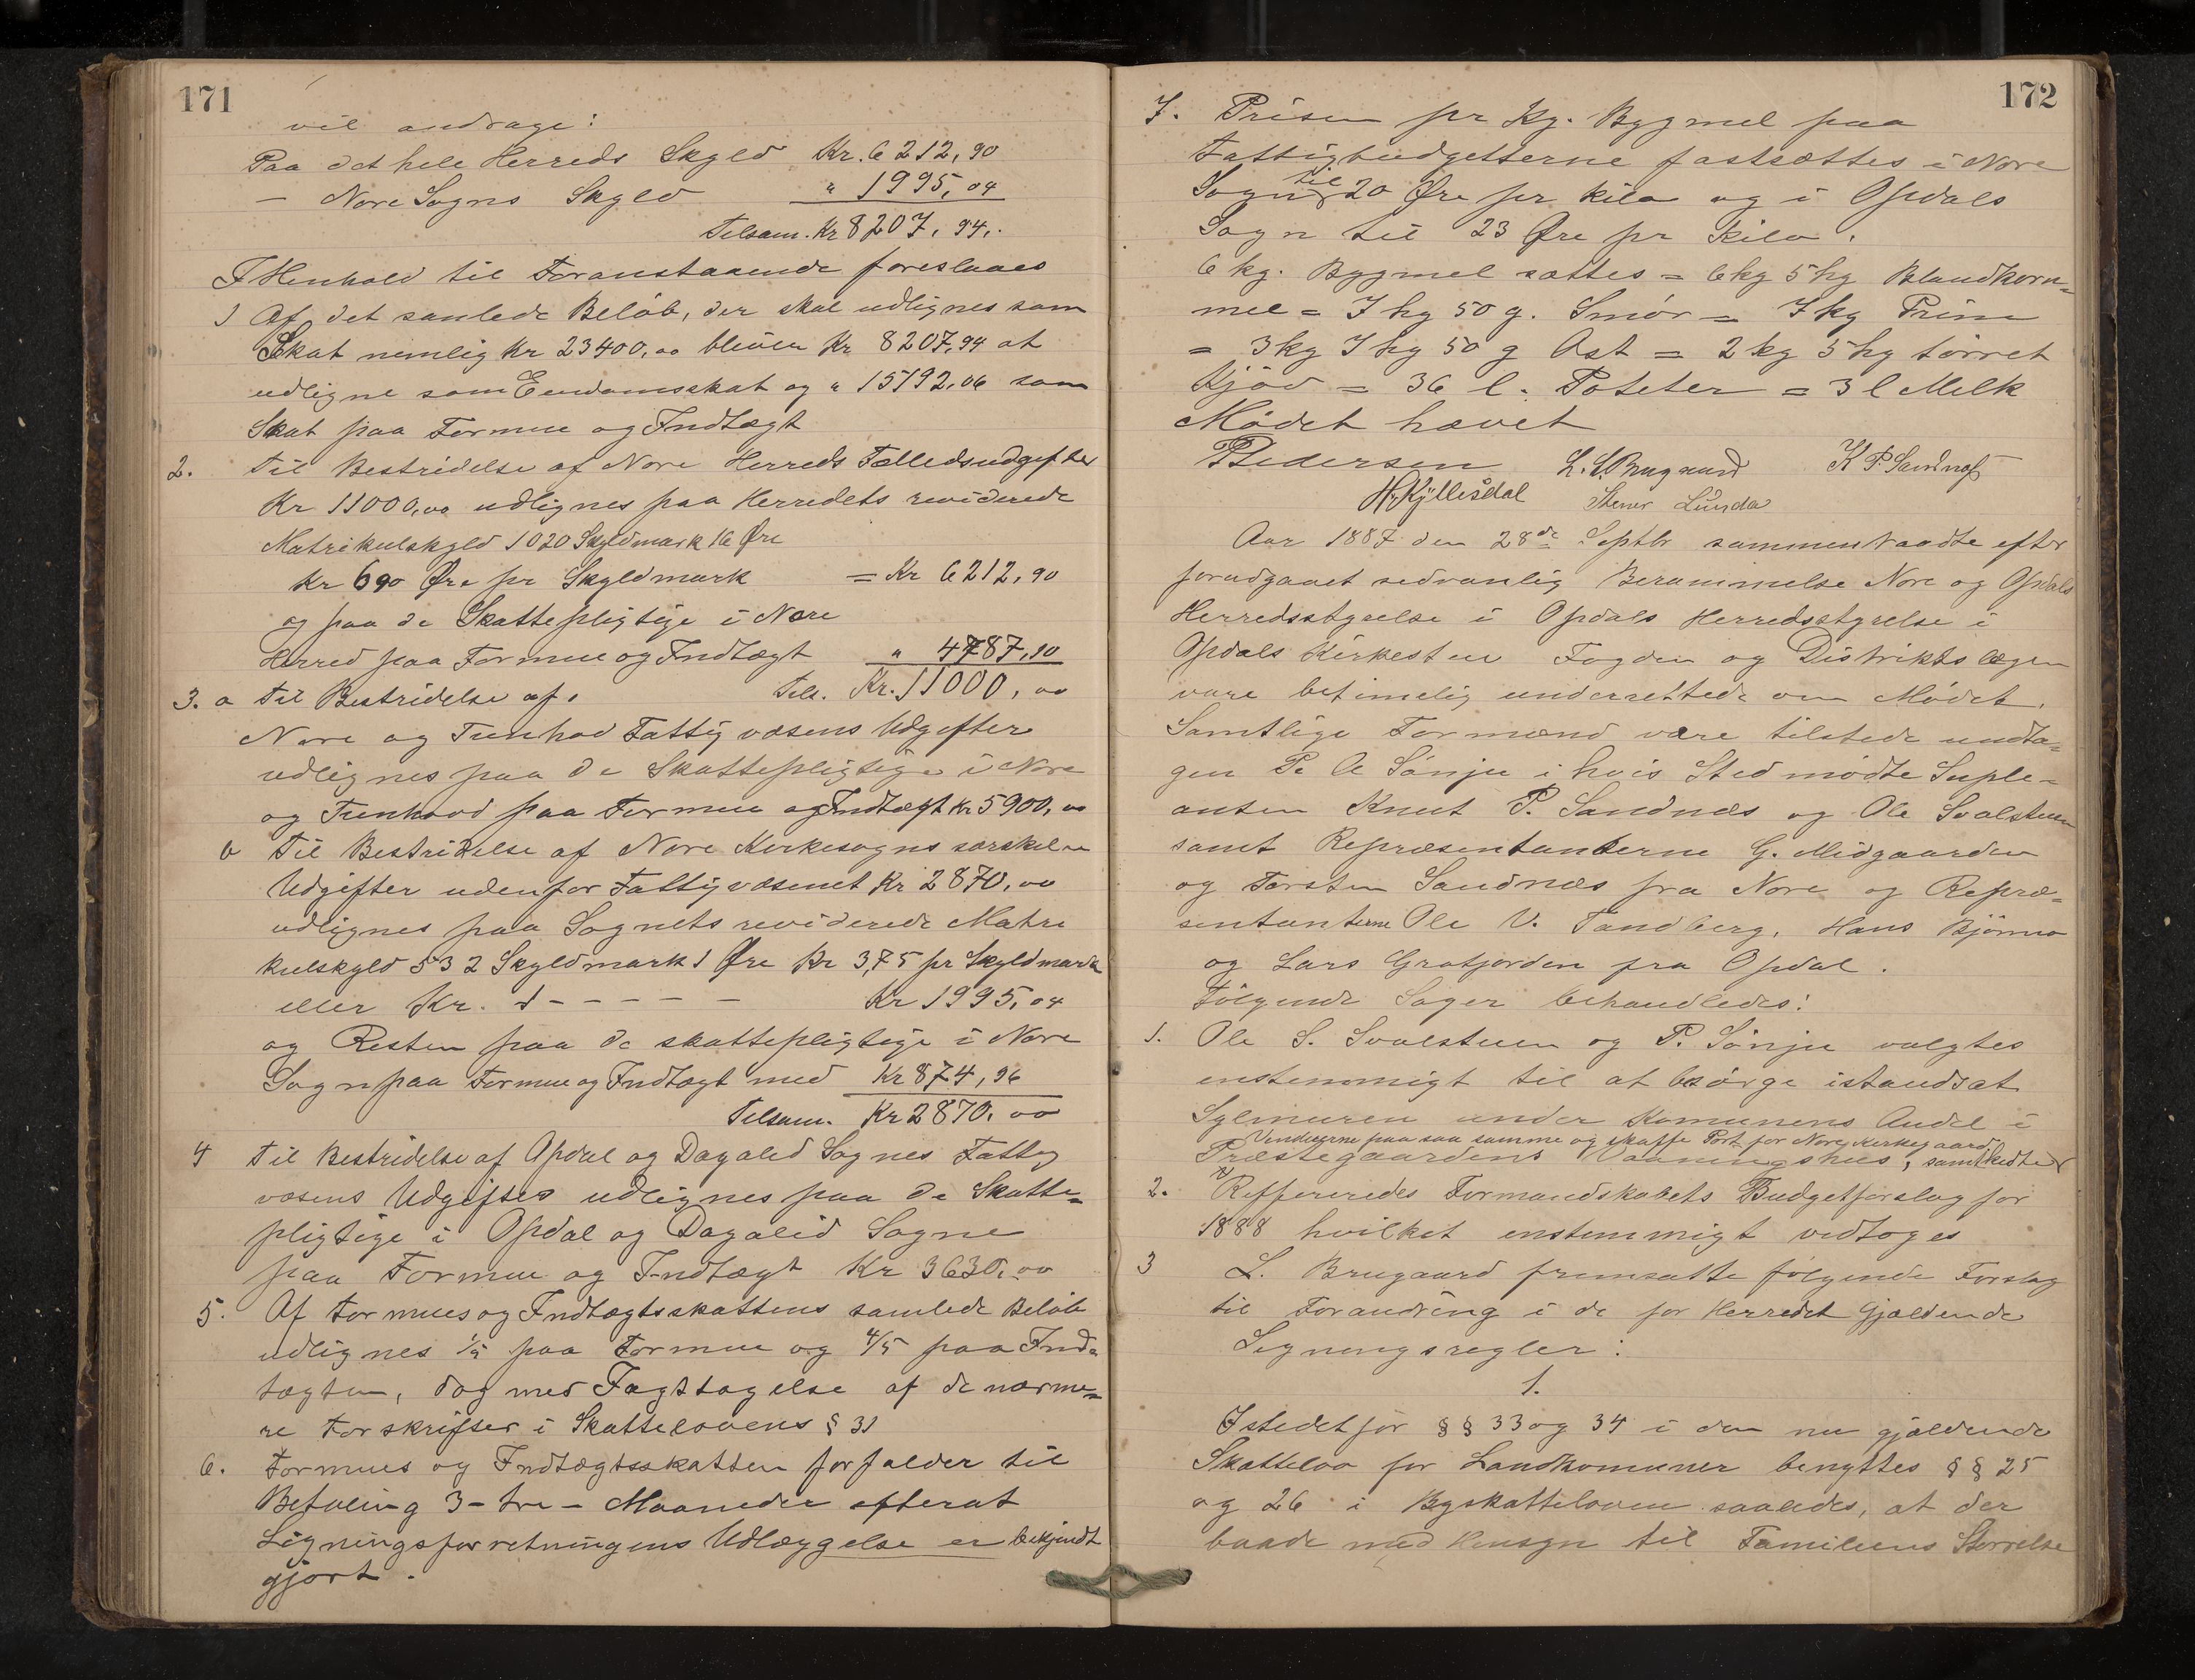 171
vil andrage:
Paa det hele Herreds Skyld Kr. 6212,90
— Nore Sogns Skyld " 1995,04
Tilsam. Kr 8207,94.
I Henhold til Foranstaaende foreslaaes
1 Af det samlede Beløb, der skal udlignes som
Skat nemlig Kr 23400,00 bliver Kr 8207,94 at
udligne som Eiendomsskat og " 15192,06 som
Skat paa Formue og Indtægt
2. Til Bestridelse af Nore Herreds Fælledsudgifter
Kr 11000,00 udlignes paa Herredets reviderede
Matrikulskyld 1020 Skyldmark 16 Øre
Kr 6 90 Øre pr Skyldmark = Kr 6212,90
og paa de Skattepligtige i Nore
Herred paa Formue og Indtægt " 4787,10
Tils. Kr. 11000,00
3. a Til Bestridelse af
Nore og Tunhovd Fattigvæsens Udgifter
udlignes paa de Skattepligtige i Nore
og Tunhovd paa Formue og Indtægt Kr 5900,00
b Til Bestridelse af Nore Kirkesogns særskilte
Udgifter udenfor Fattigvæsenet Kr 2870,00
udlignes paa Sognets reviderede Matri
kulskyld 532 Skyldmark 1 Øre Kr 3,75 pr Skyldmark
eller Kr. - - - - - Kr 1995,04
og Resten paa de skattepligtige i Nore
Sogn paa Formue og Indtægt med Kr 874,96
Tilsam. Kr 2870,00
4 Til Bestridelse af Opdal og Dagalid Sognes Fattig
væsens Udgifter udlignes paa de Skatte=
pligtige i Opdal og Dagalid Sogne
paa Formue og Indtægt Kr 3630,00
5. Af Formues og Indtægtsskattens samlede Beløb
udlignes 1/5 paa Formue og 4/5 paa Ind=
tægten, dog med Iagttagelse af de nærme=
re Forskrifter i Skattelovens § 31
6. Formues og Indtægtsskatten forfalder til
Betaling 3 - tre - Maaneder efterat
Ligningsforretningens Udlæggelse er bekjendt
gjort.
172
7. Prisen pr Kg. Bygmel paa
Fattigbudgetterne fastsættes i Nore
Sogn til 20 Øre pr kilo og i Opdals
Sogn til 23 Øre pr Kilo.
6 kg. Bygmel sættes = 6 kg 5 hg Blandkorn=
mel = 7 hg 50 g. Smør = 7 kg Prim
= 3 kg 7 hg 50 g Ost = 2 kg 5 hg tørret
Kjød = 36 l. Poteter = 3 l Melk
Mødet hævet
P Pedersen L. L. Brugaard K P. Sandnæs
H. Kyllesdal Stener Lunda
Aar 1887 den 28de Septbr sammentraadte efter
forudgaaet sedvanlig Berammelse Nore og Opdals
Herredsstyrelse i Opdals Herredsstyrelse i
Opdals Kirkestue Fogden og Distriktslægen
vare betimelig underrettede om Mødet.
Samtlige Formænd vare tilstede undta=
gen P. A Sønju i hvis Sted mødte Suple=
anten Knut P. Sandnæs og Ole Svalstuen
samt Repræsentanterne G. Midgaarden
og Torsten Sandnæs fra Nore og Repræ=
sentanterne Ole V. Tandberg, Hans Bjønno
og Lars Grotjorden fra Opdal.
Følgende Sager behandledes:
1. Ole S. Svalstuen og P. Sønju valgtes
enstemmigt til at besørge istandsat
Sylmuren under Komunens Andel i
Vinduerne paa saa samme og skaffe Port for Nore Kirkegaard
Præstegaardens Vaaningshus, samt
2. Reffereredes Formandskabets Budgetforslag for
1888 hvilket enstemmigt vedtoges
3 L. Brugaard fremsatte følgende Forslag
til Forandring i de for Herredet Gjældende
Ligningsregler:
1.
Istedetfor §§ 33 og 34 i den nu gjældende
Skattelov for Landkomuner benyttes §§ 25
og 26 i Byskatteloven saaledes, at der
baade med Hensyn til Familiens Størrelse